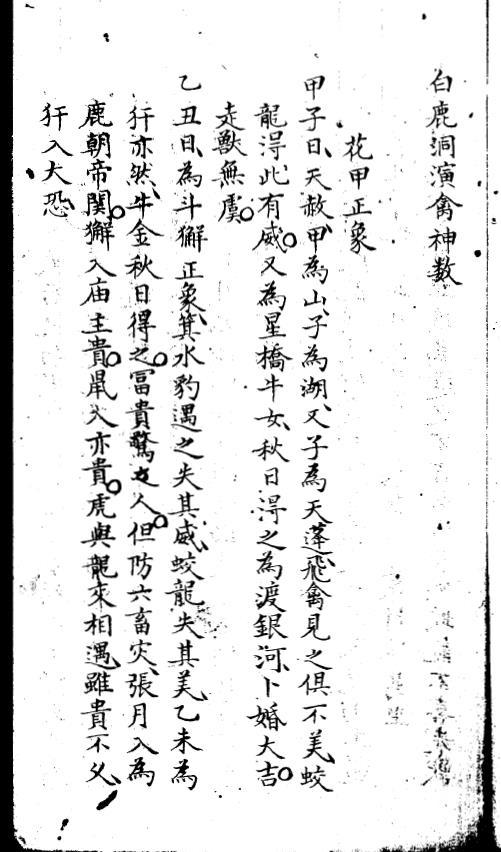 白鹿洞演禽神数
花甲正象
甲子日、天赦、甲為山、子為湖、又子為天蓬、飛禽見之俱不美、蛟
龍得此有威。又為星橋牛女、秋日得之為渡銀河、卜婚大吉。
走獸無虞。
乙丑日、為斗獬正象、箕水豹遇之失其威、蛟龍失其美、乙未為
犴亦然、牛金秋日得之。富貴驚人。但防六畜灾、張月入為
鹿朝帝闕。獬入庙主貴。鼠入亦貴。虎與龍來相遇、雖貴不久、
犴入大恐、